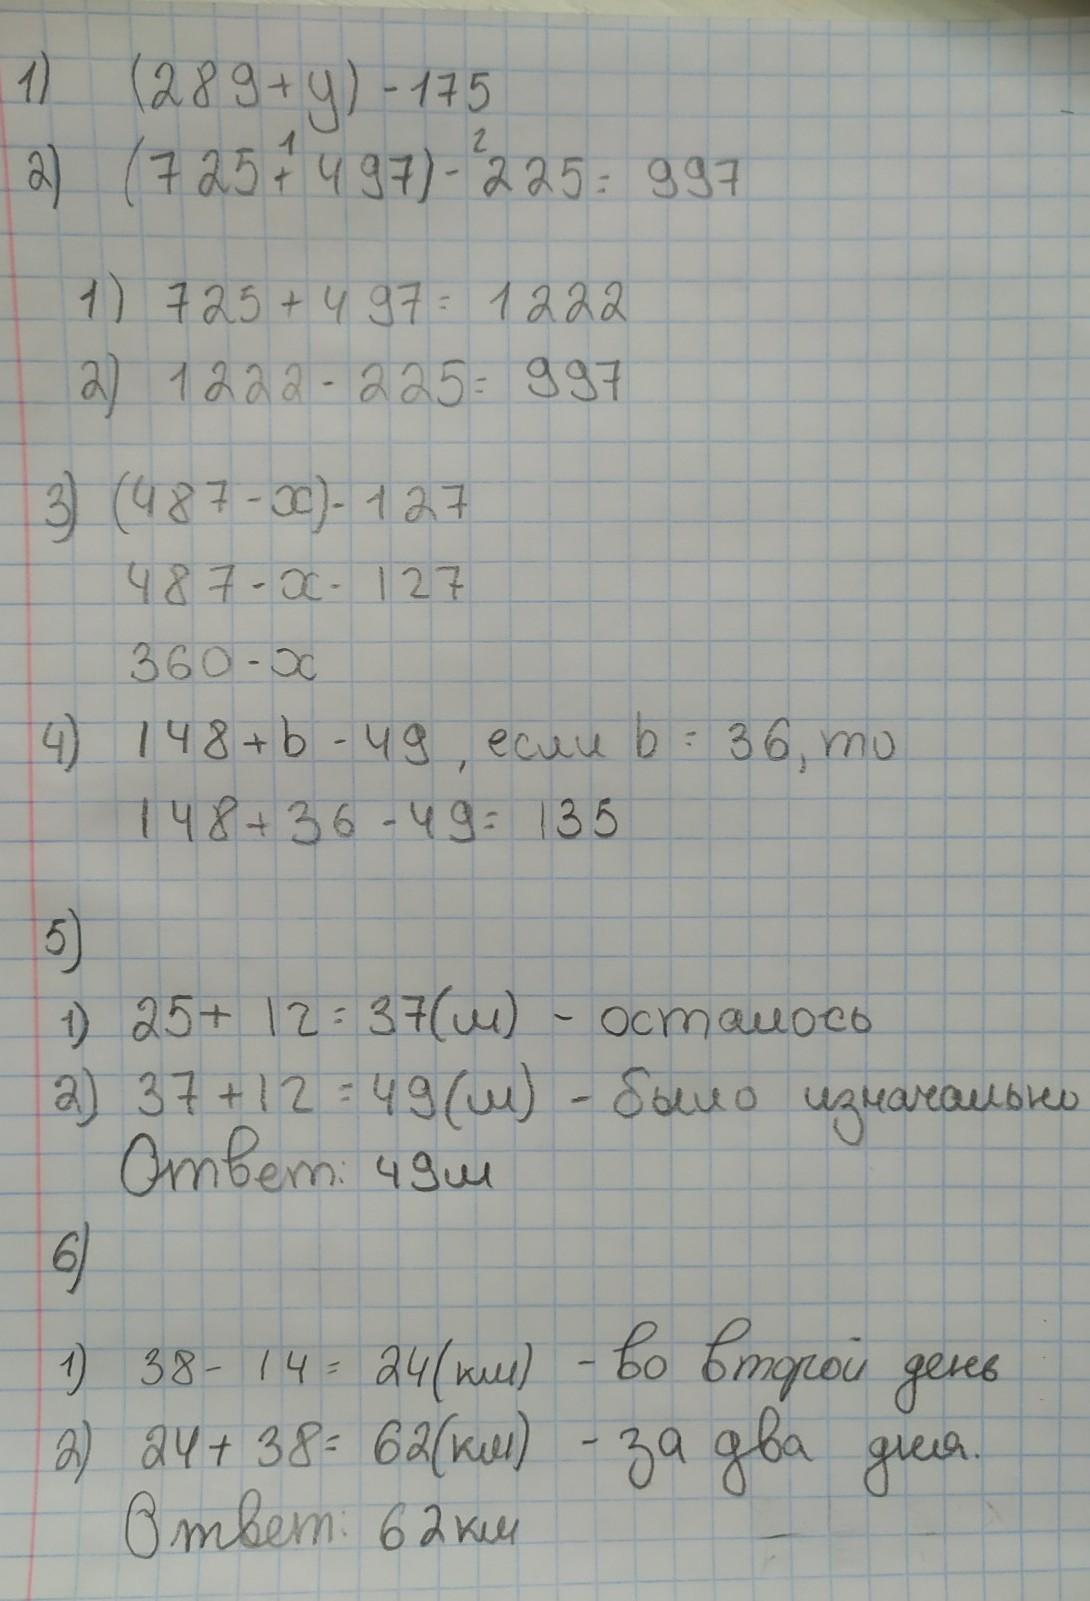 1) (289+y)-175
2) (725+497)-225= 997
1 2
1) 725+497= 1222
2) 1222-225= 997
3) (487-x)-127
487-x-127
360-x
4) 148+b-49, если b = 36, то
148+36-49= 135
5)
1) 25+12=37(м) - осталось
2) 37+12=49(м) - было изначально
Ответ: 49м
6)
1) 38-14= 24(км) - во второй день
2) 24+38= 62(км) - за два дня.
Ответ: 62км